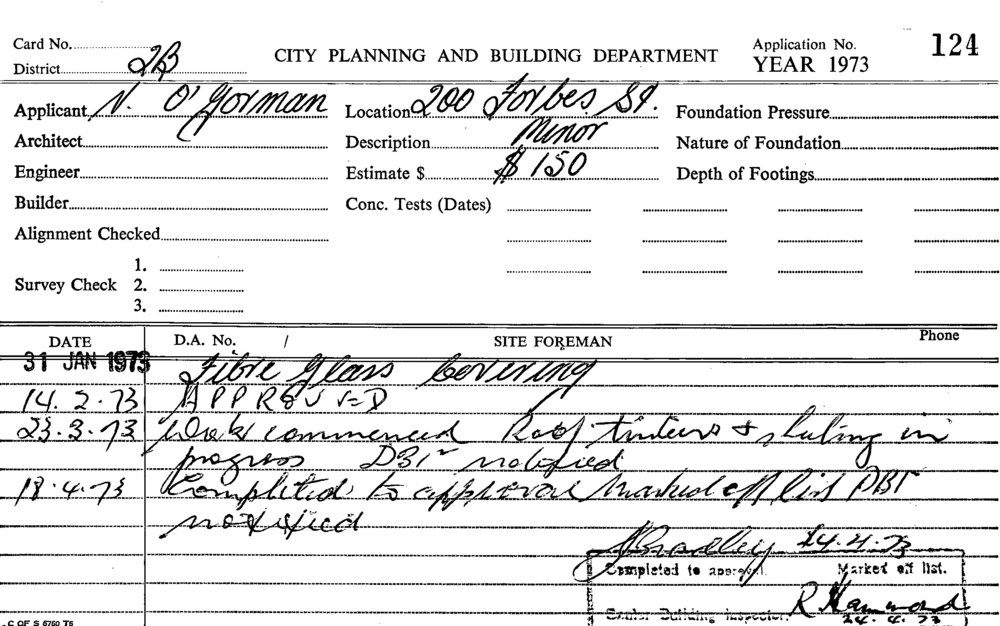 Card No. CITY PLANNING AND BUILDING DEPARTMENT Application No. 124
District 2B YEAR 1973
Applicant N. O'Gorman Location 200 Forbes St. Foundation Pressure
Architect Description Minor Nature of Foundation
Engineer Estimate $ $150 Depth of Footings
Builder Conc. Tests (Dates)
Alignment Checked
1.
Survey Check 2.
3.
DATE D.A. No. / SITE FOREMAN Phone
31 JAN 1973 Fibre Glass Covering
14.2.73 APPROVED
23.3.73 Work commenced Roof timbers & sheeting in
progress DBI notified
18.4.73 Completed to approval Marked off list DBI
notified
Bradley 24.4.73
Completed to approval. Marked off list.
Building Inspector. R Hammond
24.4.73
C OF S 6760 T6